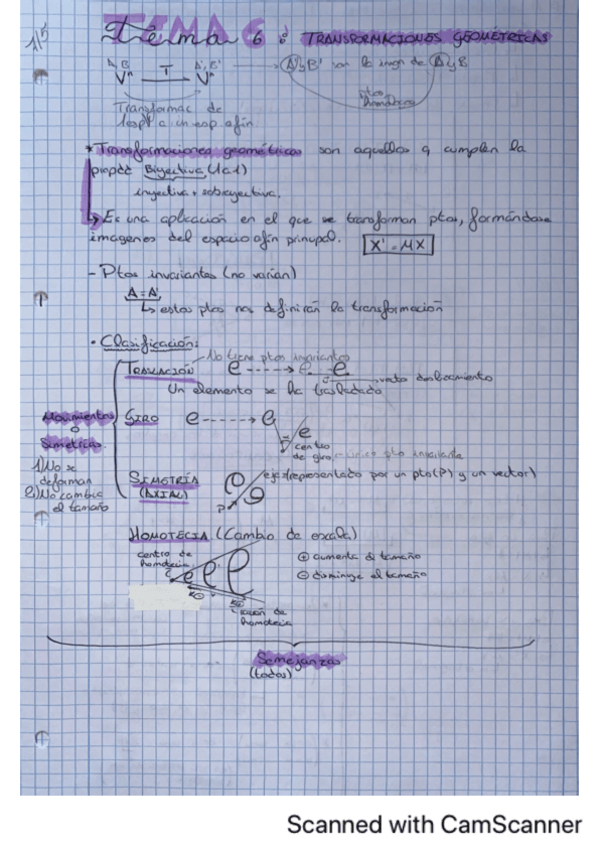 1/5
TEMA 6
Tema 6: TRANSFORMACIONES GEOMÉTRICAS
A, B T A', B' A' y B' son la imagen de A y B
Vⁿ Vⁿ
ptos homólogos
Transformac de
1 esp a un esp afín
* Transformaciones geométricas son aquellas q cumplen la
propdd Biyectiva (1a1)
inyectiva + sobreyectiva.
↳ Es una aplicación en el que se transforman ptos, formándose
imagenes del espacio afín principal. X' = MX
- Ptos invariantes (no varían)
A = A'
↳ estos ptos nos definirán la transformación
• Clasificación:
No tiene ptos invariantes
TRASLACIÓN e ----> e e
vector deslocamiento
Un elemento se ha trasladado
Movimientos
o
Simetrías.
1) No se
deforman
2) No cambia
el tamaño
GIRO e ----> e
e
centro
de giro único pto invariante
SIMETRÍA
(AXIAL)
eje (representado por un pto (P) y un vector)
P
HOMOTECIA (Cambio de escala)
centro de
homotecia
C e e e
⊕ aumenta el tamaño
⊖ disminuye el tamaño
razón de
homotecia
Semejanzas
(todas)
Scanned with CamScanner